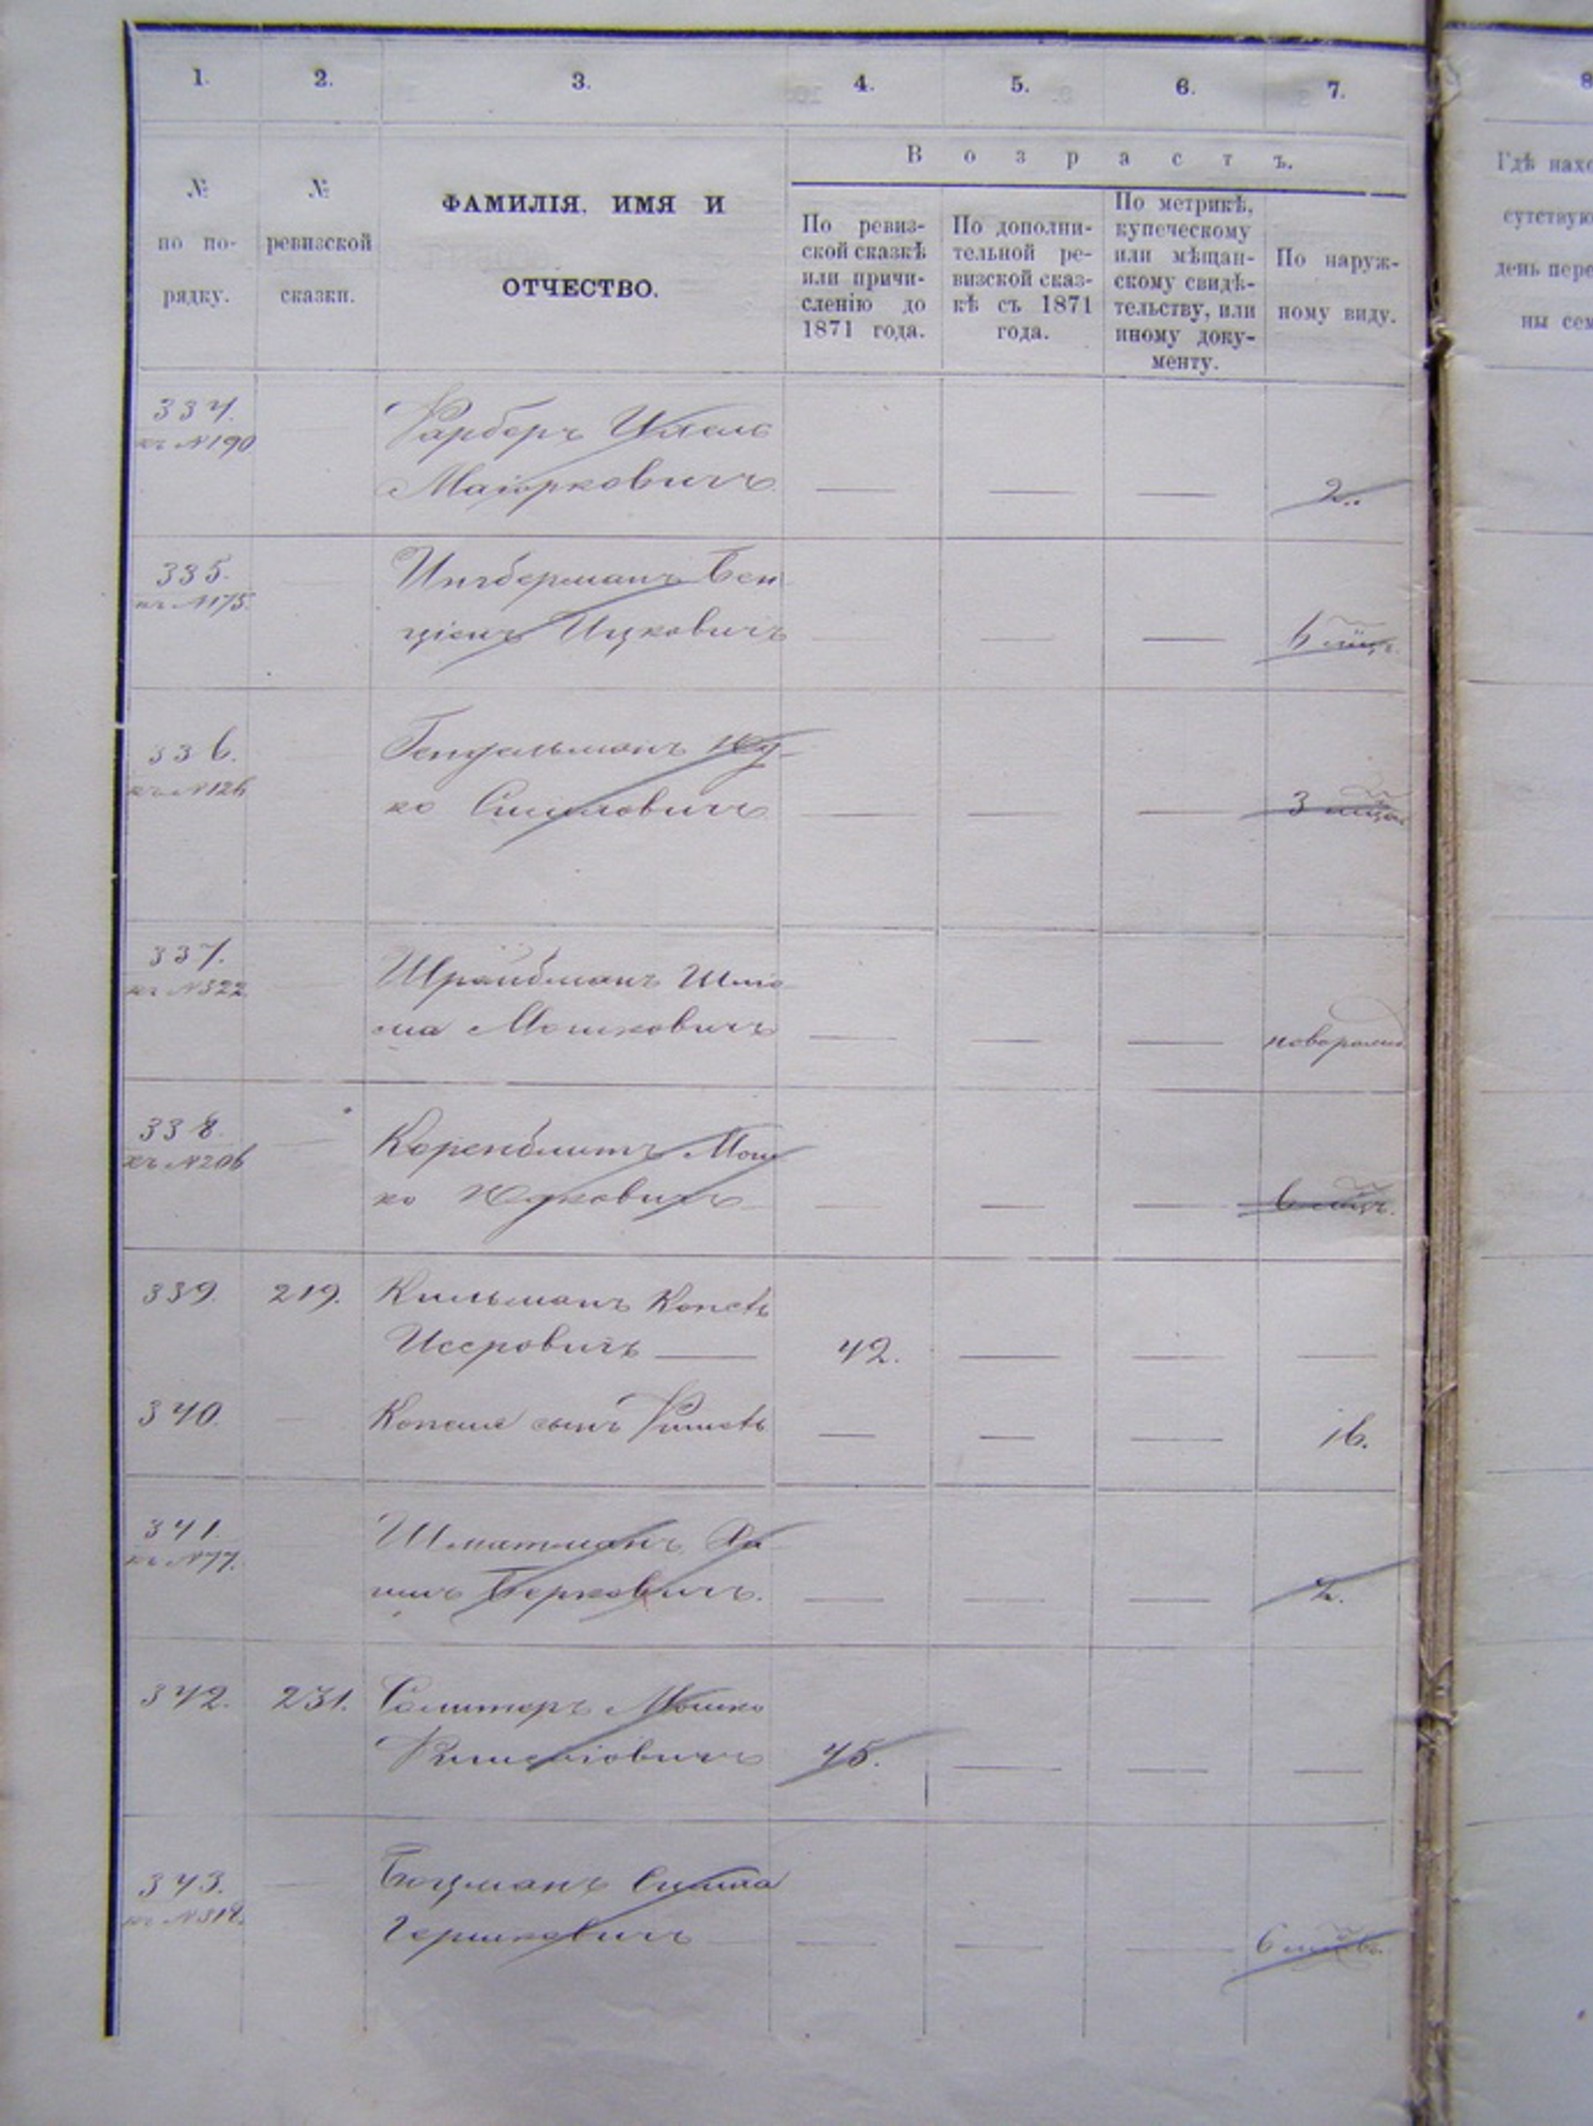 1.
2.
3.
4.
5.
6.
7.
8
№
по по-
рядку.
№
ревизской
сказки.
ФАМИЛІЯ, ИМЯ И
ОТЧЕСТВО.
Возрастъ.
По ревиз-
ской сказкѣ
или причи-
сленію до
1871 года.
По дополни-
тельной ре-
визской сказ-
кѣ съ 1871
года.
По метрикѣ,
купеческому
или мѣщан-
скому свидѣ-
тельству, или
иному доку-
менту.
По наруж-
ному виду.
Гдѣ нахо
сутствую
день пере
ны сем
334.
къ №190
Фарберъ
Маіорковичъ — — — 2
335.
къ №175
Ингберманъ Бен
ціонъ Ицковичъ — — — 6 мѣц.
336.
къ №126
Гендельманъ Юд-
ко Сімховичъ — — — 3
337.
къ №322
Шрайбманъ Шлio
ма Мошковичъ — — — новорожд
338.
къ №206
Коренблитъ Мош
ко Юдковичъ — — — 6 мѣц.
339. 219. Кильманъ Копель
Исеровичъ — 42. — — —
340. — Копеля сынъ Фишель — — — 16.
341.
къ №77.
Шлитманъ Ха
имъ Берковичъ. — — — 2.
342. 231. Солитеръ Мошко
Фишеліовичъ 45. — — —
343. —
къ №318.
Боцманъ Симха
Гершковичъ — — — — 6